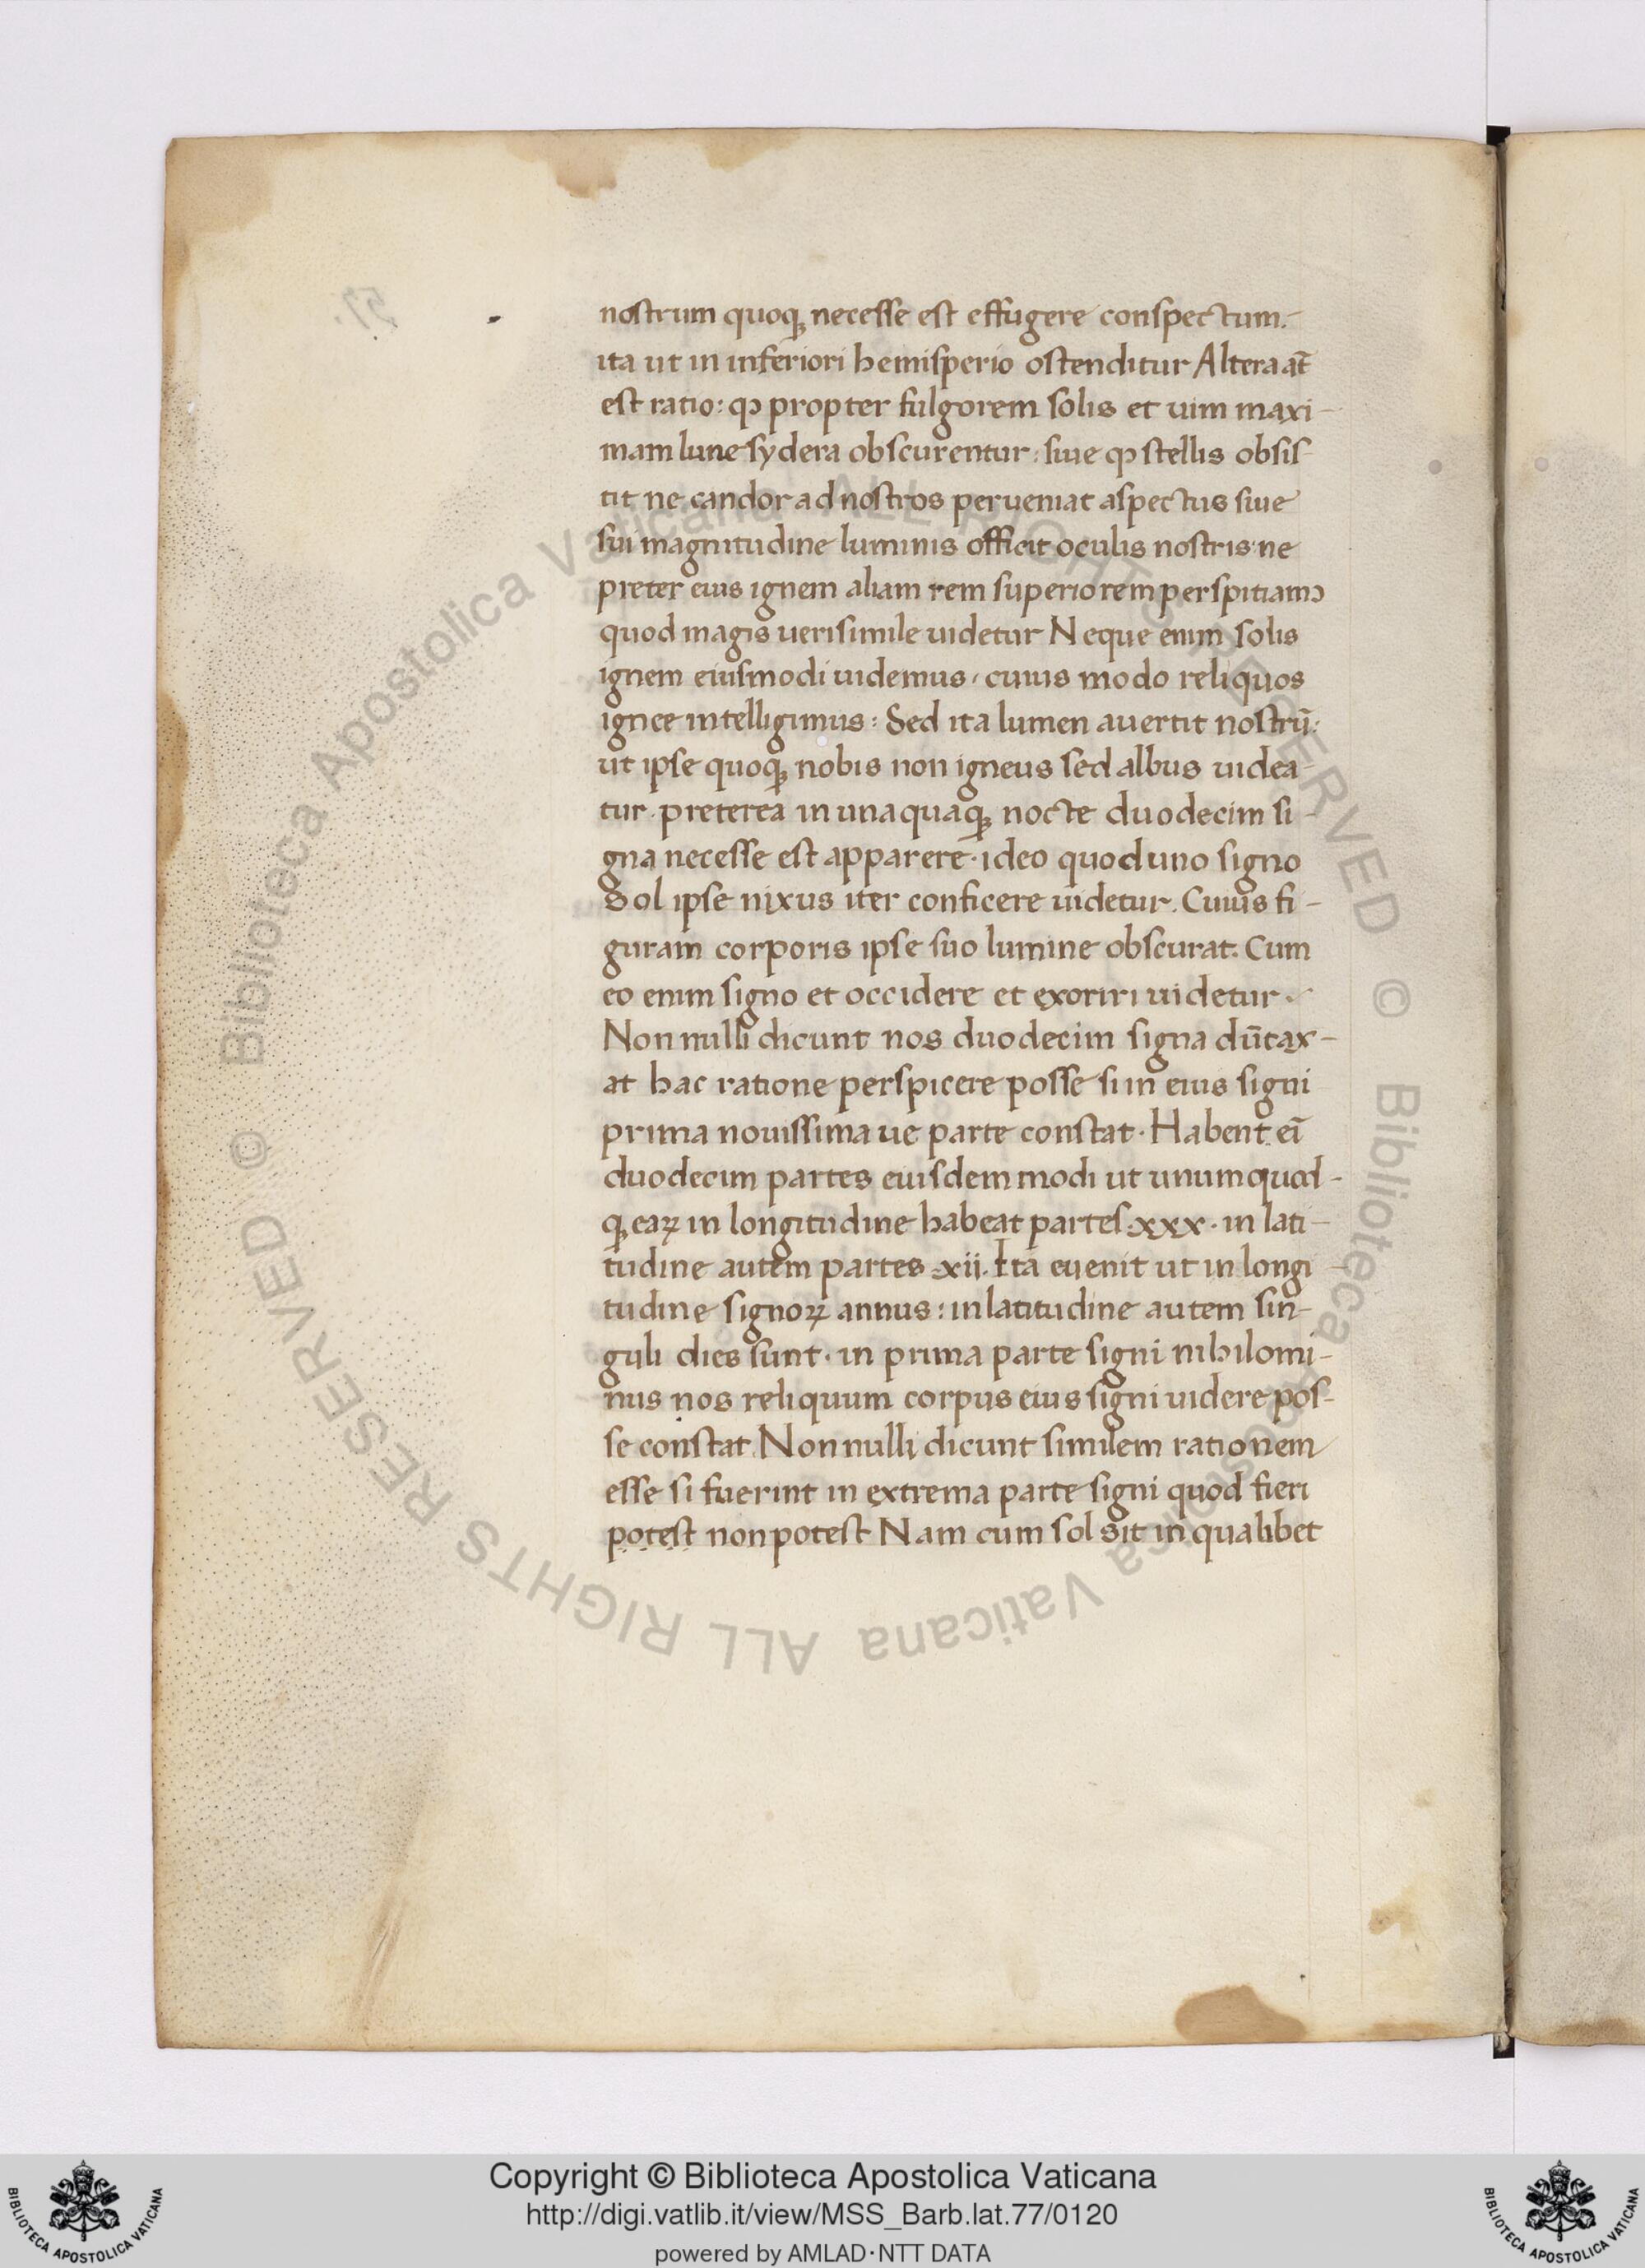 nostrum quoq; necesse est effugere conspectum.
ita ut in inferiori hemisperio ostenditur Altera at̄
est ratio: ꝙ propter fulgorem solis et uim maxi-
mam lune sydera obscurentur: siue ꝙ stellis obsis-
tit ne candor ad nostros perueniat aspectus siue
sui magnitudine luminis officit oculis nostris ne
preter eius ignem aliam rem superiorem perspitiamꝰ
quod magis uerisimile uidetur Neque enim solis
ignem eiusmodi uidemus, cuius modo reliquos
ignee intelligimus: Sed ita lumen auertit nostrū:
ut ipse quoq; nobis non igneus sed albus uidea-
tur. preterea in unaquaq; nocte duodecim si-
gna necesse est apparere. ideo quod uno signo
Sol ipse nixus iter conficere uidetur. Cuius fi-
guram corporis ipse suo lumine obscurat. Cum
eo enim signo et occidere et exoriri uidetur.
Non nulli dicunt nos duodecim signa dūtax-
at hac ratione perspicere posse si in eius signi
prima nouissima ue parte constat. Habent eī
duodecim partes eiusdem modi ut unumquod-
q; eaꝝ in longitudine habeat partes .xxx. in lati-
tudine autem partes .xii. Ita euenit ut in longi-
tudine signoꝝ annus: in latitudine autem sin-
guli dies sunt. in prima parte signi nihilomi-
nus nos reliquum corpus eius signi uidere pos-
se constat. Non nulli dicunt similem rationem
esse si fuerint in extrema parte signi quod fieri
potest non potest Nam cum sol sit in qualibet
© Biblioteca Apostolica Vaticana ALL RIGHTS RESERVED
© Biblioteca Apostolica Vaticana ALL RIGHTS RESERVED
BIBLIOTECA APOSTOLICA VATICANA
Copyright © Biblioteca Apostolica Vaticana
http://digi.vatlib.it/view/MSS_Barb.lat.77/0120
powered by AMLAD·NTT DATA
BIBLIOTECA APOSTOLICA VATICANA